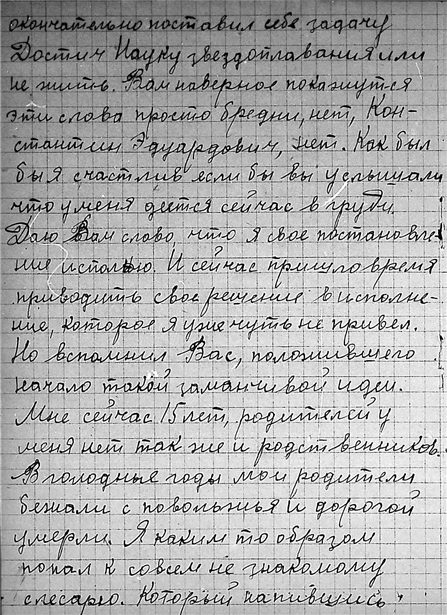 окончательно поставил себе задачу
Достич Науку звездоплавания или
не жить. Вам наверное покажутся
эти слова просто бредни, нет, Кон-
стантин Эдуардович, нет. Как был
бы я счастлив если бы вы услышали
что у меня деется сейчас в груди.
Даю Вам слово, что я свое постановле-
ние исполню. И сейчас пришло время
приводить свое решение в исполне-
ние, которое я уже чуть не привел.
Но вспомнил Вас, положившего
начало такой заманчивой идеи.
Мне сейчас 15 лет, родителей у
меня нет так же и родственников.
В голодные годы мои родители
бежали с поволжья и дорогой
умерли. Я каким то образом
попал к совсем не знакомому
слесарю. Который напившись